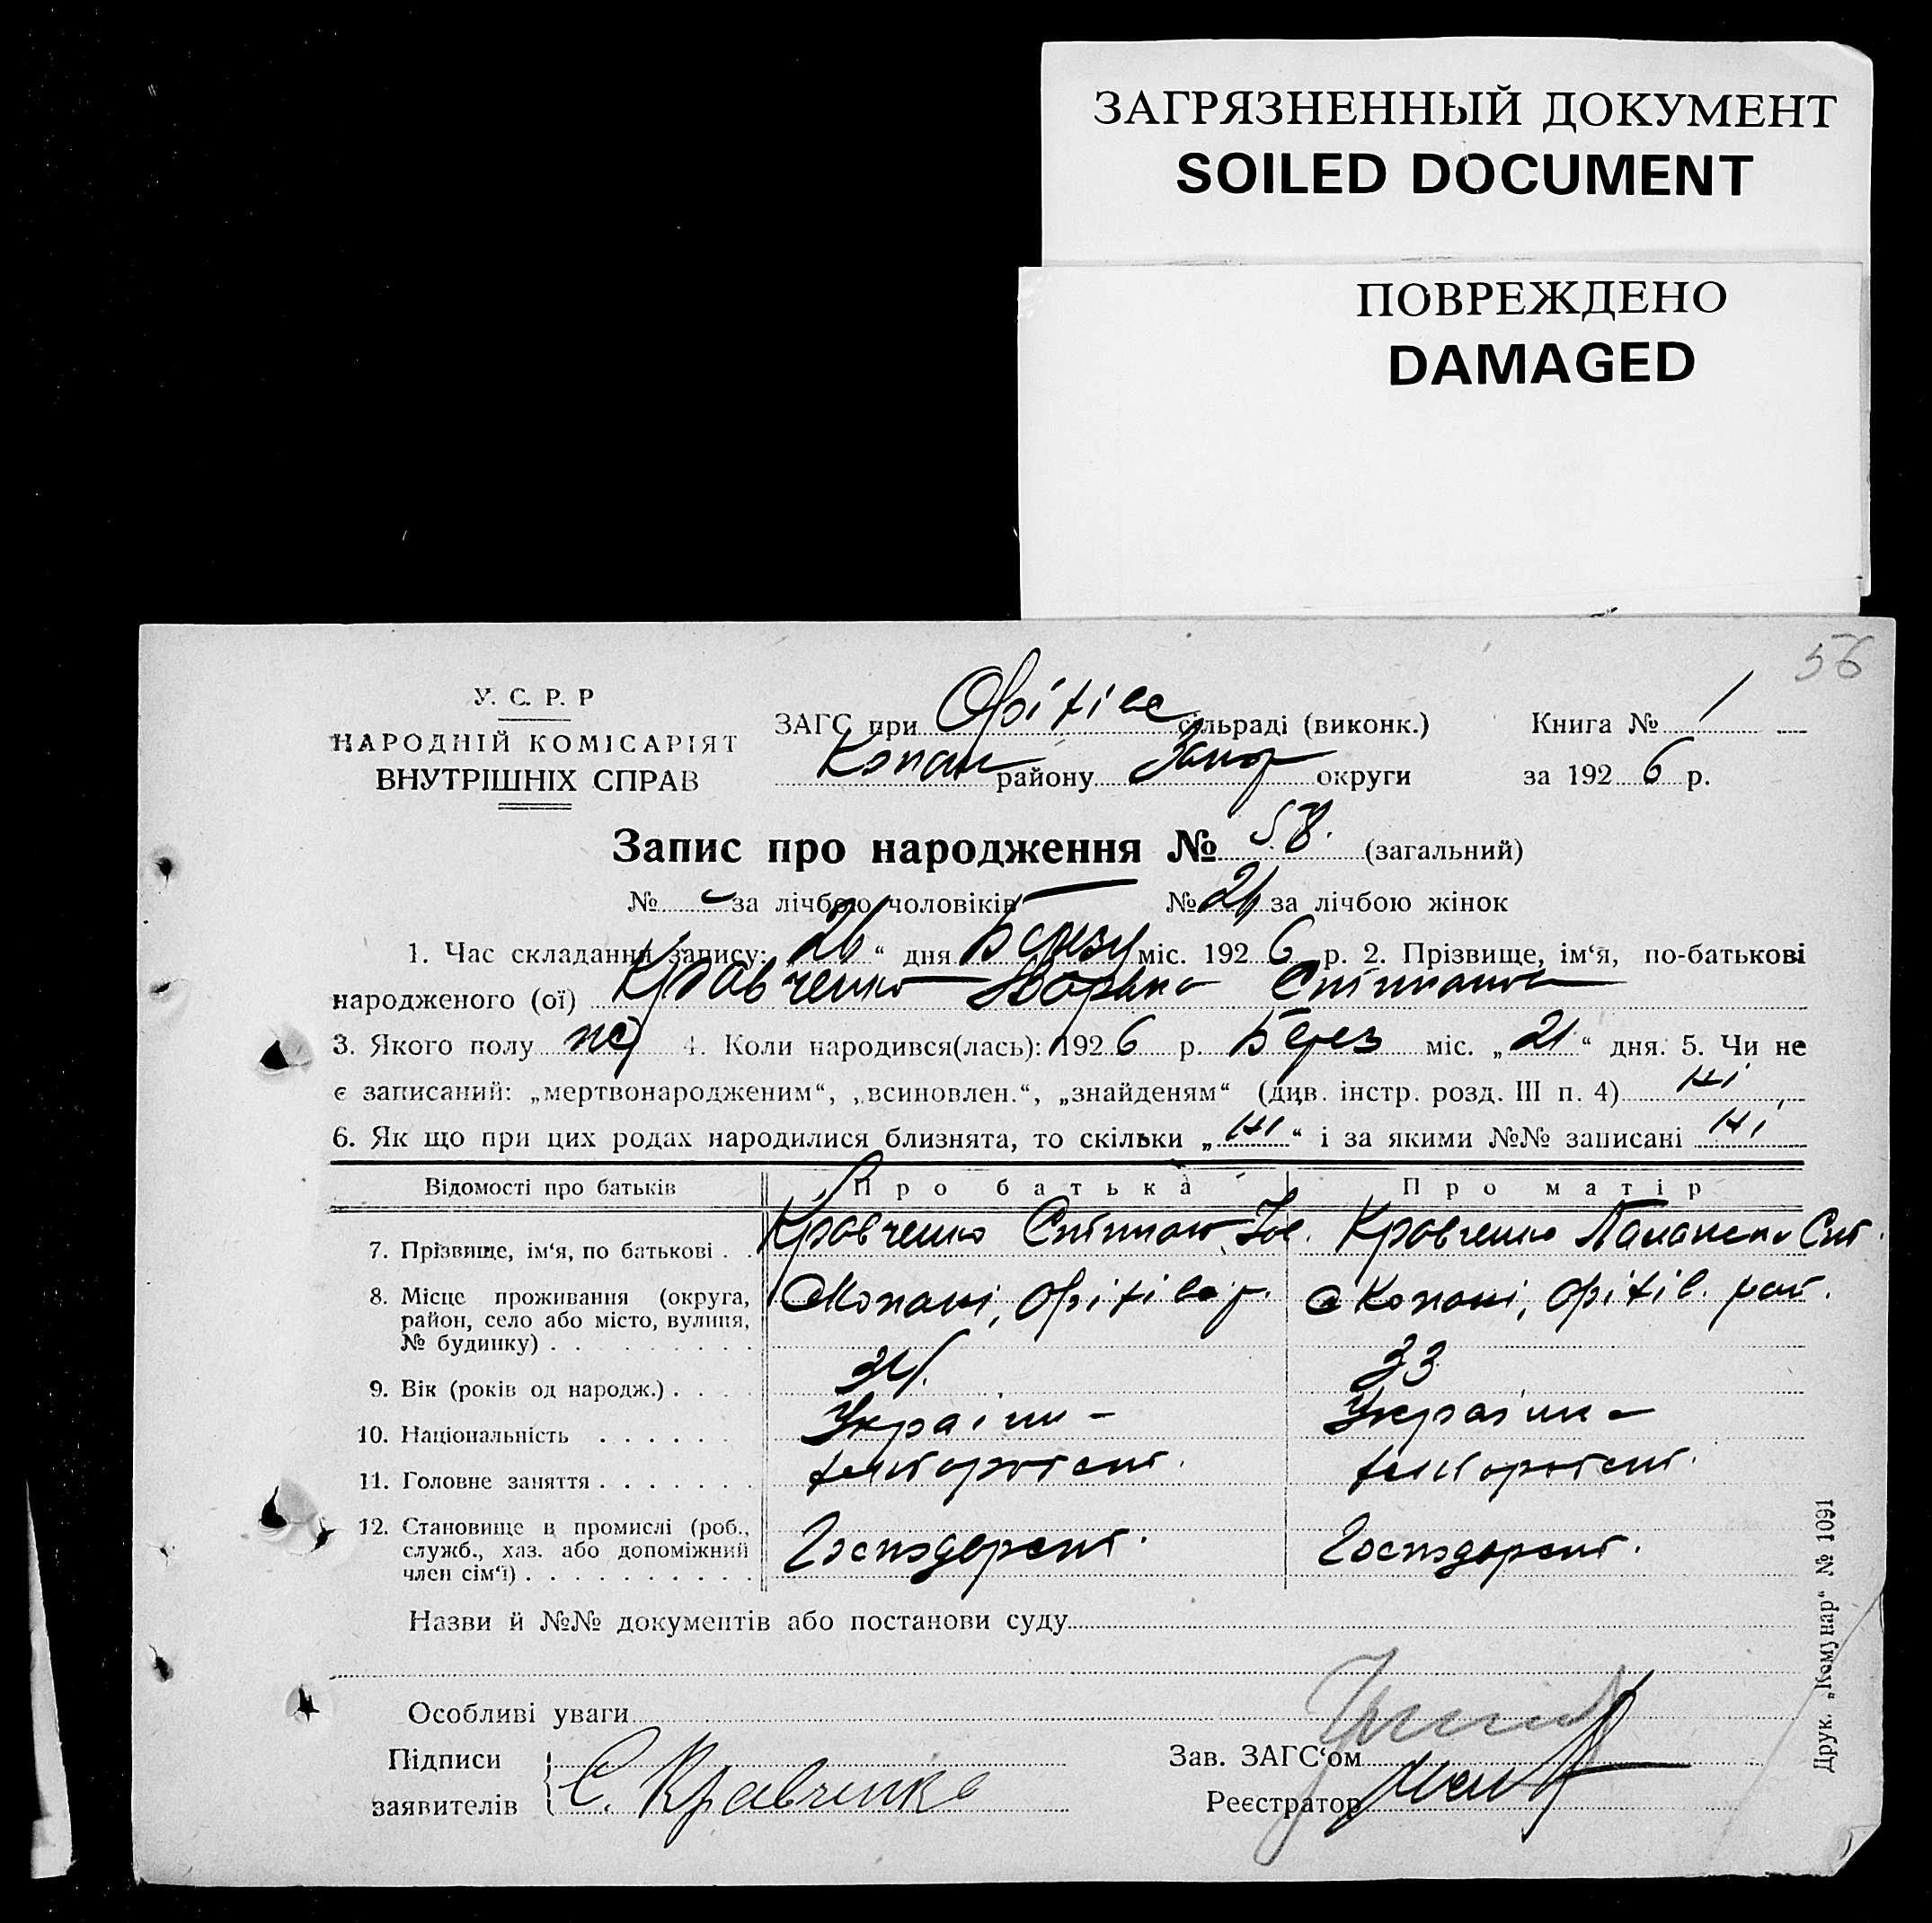 ЗАГРЯЗНЕННЫЙ ДОКУМЕНТ
SOILED DOCUMENT
ПОВРЕЖДЕНО
DAMAGED
56
У. С. Р. Р
НАРОДНІЙ КОМІСАРІЯТ
ВНУТРІШНІХ СПРАВ
ЗАГС при Оріхів сільраді (виконк.) Книга № 1
Копан району Запор округи за 1926 р.
Запис про народження № 58. (загальний)
№ за лічбою чоловіків № за лічбою жінок
1. Час складання запису: „26“ дня Березу міс. 1926 р. 2. Прізвище, ім‘я, по-батькові
народженого (ої) Кравченко Степанов
3. Якого полу 4. Коли народився(лась): 1926 р. Берез міс. „21“ дня. 5. Чи не
є записаний: „мертвонародженим“, „всиновлен.“, „знайденям“ (див. інстр. розд. III п. 4) ні
6. Як що при цих родах народилися близнята, то скільки „ні“ і за якими №№ записані ні
Відомості про батьків Про батька Про матір
7. Прізвище, ім‘я, по батькові . . Кравченко Степан Кравченко
8. Місце проживання (округа, с Копані, Оріхів р. с Копані, Оріхів. рай.
район, село або місто, вулиця,
№ будинку) . . . . . . . . .
9. Вік (років од народж.) . . . . 33
10. Національність . . . . . . Україин - Україин -
11. Головне заняття . . . . . . . хлібороб хлібороб
12. Становище в промислі (роб., Господар Господар
служб., хаз. або допоміжний
член сім‘ї) . . . . . . . . . .
Назви й №№ документів або постанови суду
Особливі уваги
Підписи Зав. ЗАГС‘ом
заявителів С. Кравченко Реєстратор
Друк. „Комунар“ № 1091